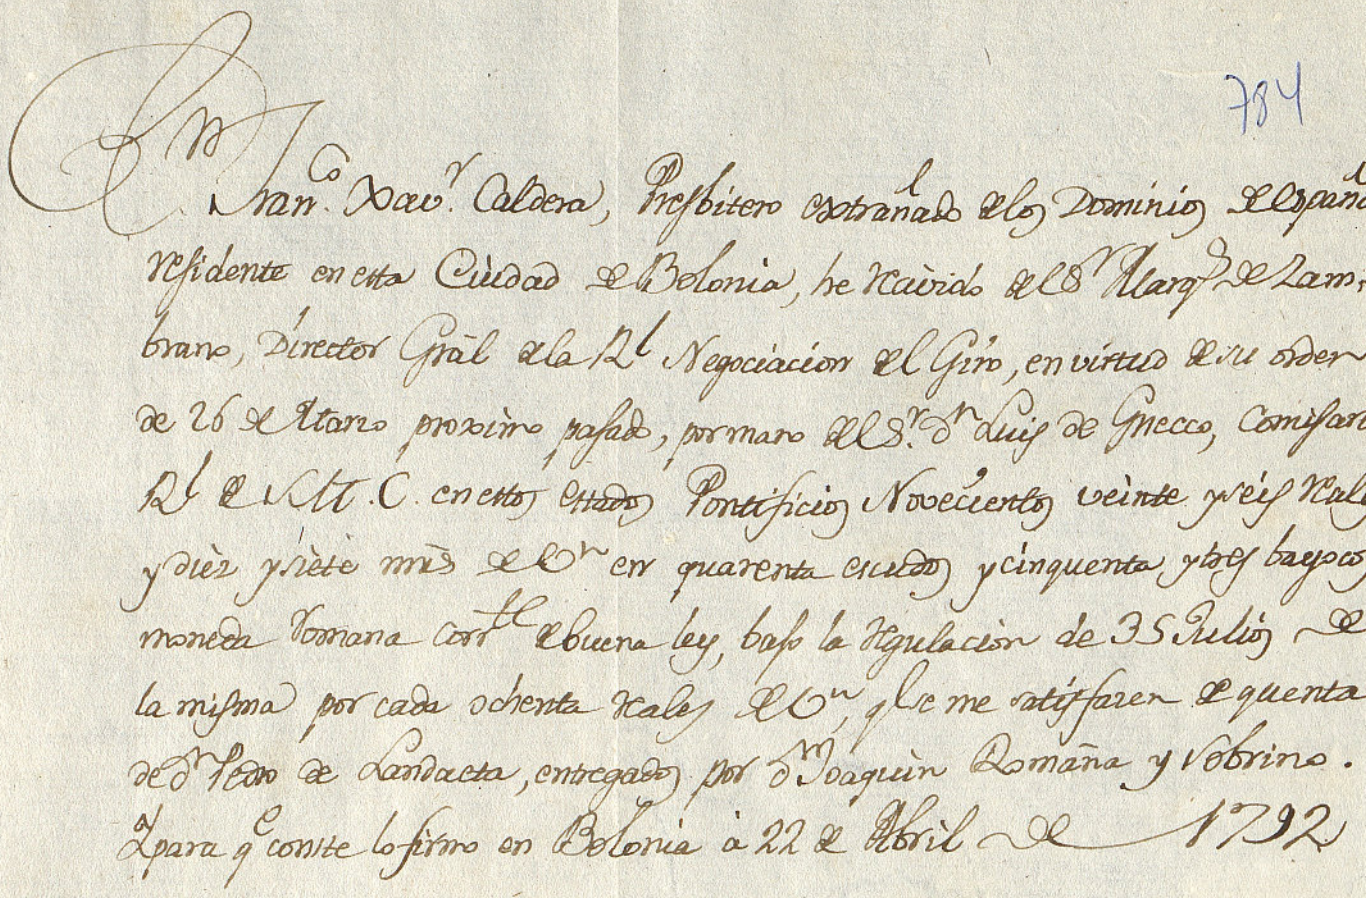 784
Dn Franco. Xavr. Caldera, Presbitero extrañado delos Dominios de España
residente en esta Ciudad de Bolonia, he recivido del Sr Marqs de Zam-
brano, Director Gràl dela Rl Negociacion del Giro, en virtud de su orden
de 26 de Marzo proximo pasado, por mano del Sr. dn Luis de Gnecco, Comisari
Rl de S. M. C. en estos Estados Pontificios Novecientos veinte y seis reals
y diez y siete mrs de Vn en quarenta escudos y cinquenta y tres bayocos
moneda romana corrte de buena ley, bajo la regulacion de 35 Julios de
la misma por cada ochenta reales de Vn, q se me satisfacen de quenta
de dn Pedro de Landaeta, entregados por dn Joaquin Romaña y Sobrino.
Y para qe conste lo firmo en Bolonia à 22 de Abril de 1792